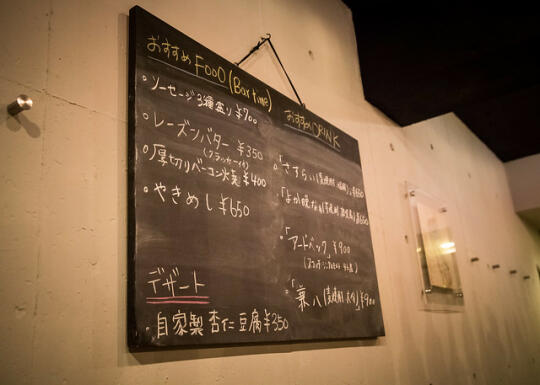 おすすめ FOOD (Bar time)
・ソーセージ3種盛り ¥700
・レーズンバター ¥350
(クラッカー付)
・厚切りベーコン火炙 ¥400
・やきめし ¥650
デザート
・自家製 杏仁豆腐 ¥350
おすすめ DRINK
・「さすらい(麦焼酎)」¥650
¥650
・「アードベッグ」¥900
・「兼八(麦焼酎)」¥900